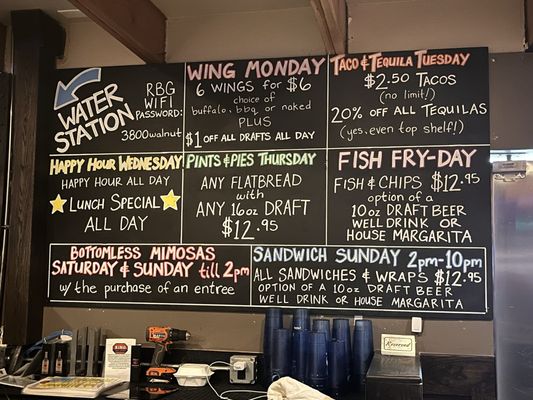 WATER
STATION
RBG
WIFI
PASSWORD:
3800walnut
WING MONDAY
6 WINGS for $6
choice of
buffalo, bbq or naked
PLUS
$1 OFF ALL DRAFTS ALL DAY
TACO & TEQUILA TUESDAY
$2.50 TACOS
(no limit!)
20% OFF ALL TEQUILAS
(yes, even top shelf!)
HAPPY HOUR WEDNESDAY
HAPPY HOUR ALL DAY
LUNCH SPECIAL
ALL DAY
PINTS & PIES THURSDAY
ANY FLATBREAD
with
ANY 16oz DRAFT
$12.95
FISH FRY-DAY
FISH & CHIPS $12.95
option of a
10oz DRAFT BEER
WELL DRINK OR
HOUSE MARGARITA
BOTTOMLESS MIMOSAS
SATURDAY & SUNDAY till 2pm
w/ the purchase of an entree
SANDWICH SUNDAY 2pm-10pm
ALL SANDWICHES & WRAPS $12.95
OPTION OF A 10oz DRAFT BEER
WELL DRINK OR HOUSE MARGARITA
Reserved